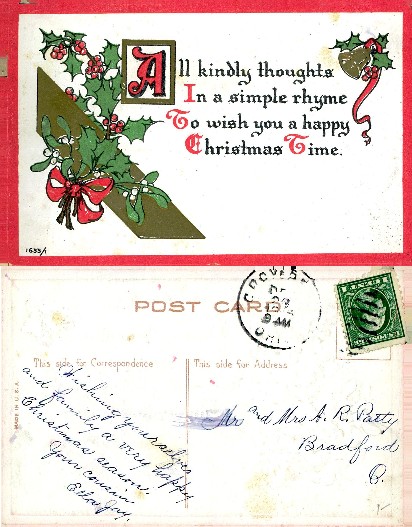 All kindly thoughts
In a simple rhyme
To wish you a happy
Christmas Time.
1655/1
POST CARD
9 AM
This side for Correspondence
This side for Address
MADE IN U.S.A.
Wishing yourselves
and family a very happy
Christmas season
Your cousin
Mr and Mrs A. R. Patty
Bradford
O.